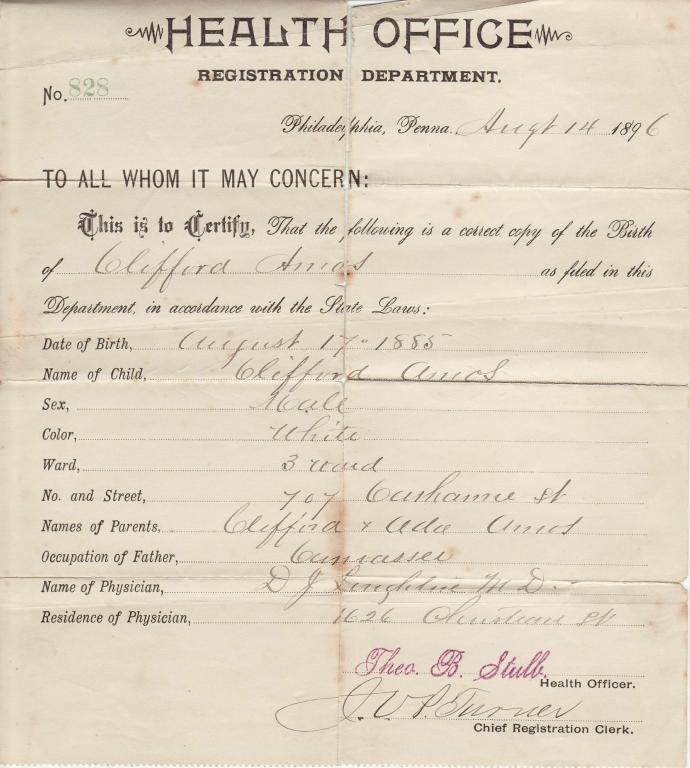 HEALTH OFFICE
REGISTRATION DEPARTMENT.
No. 828
Philadelphia, Penna. Augt 14 1896
TO ALL WHOM IT MAY CONCERN:
This is to Certify, That the following is a correct copy of the Birth
of Clifford Amos as filed in this
Department, in accordance with the State Laws:
Date of Birth, August 17" 1885
Name of Child, Clifford Amos
Sex, Male
Color, White
Ward, 3 ward
No. and Street, 707 St
Names of Parents, Clifford & Ada Amos
Occupation of Father, Canvasser
Name of Physician, D J M D.
Residence of Physician, 1626 Christian St
Theo. B. Stulb.
Health Officer.
J. V. P. Turner
Chief Registration Clerk.